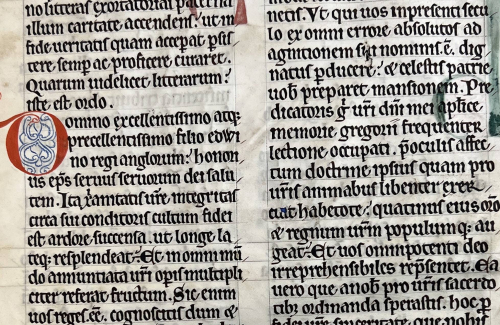 no litteras exortatorias paterna
illum caritate accendens: ut in
fide ueritatis quam accepat psis
tere semp ac proficere curaret.
Quarum uidelicet litterarum:
iste est ordo.
Domino excellentissimo atq;
precellentissimo filio edwi
no regi anglorum: honori
us ep̄s seruus seruorum dei salu
tem. Ita xp̄ianitatis ur̄e integritas
circa sui conditoris cultum fidei
est ardore succensa. ut longe la
teq; resplendeat. Et in omni mūn
do annuntiata ur̄i opis multipli
citer referat fructum. Sic enim
uos reges eē. cognoscitis dum &
netis. Ut qui uos in presenti secu
lo ex omni errore absolutos ad
agnitionem sui nominis ē. dig
natus p̄ducere: & celestis patrie
uob̄ preparet mansionem. Pre
dicatoris gͥ ur̄i dn̄i mei aplice
memorie gregorii frequenter
lectione occupati. p̄oculis affec
tum doctrine ipsius quam pro
ur̄is animabus libenter exer
cuit habetote. quatinus eius oro
& regnum ur̄m populumq; au
geat. Et uos omnipotenti deo
irreprehensibiles rep̄sentet. Ea
uero que a nob̄ pro ur̄is sacerdo
tib; ordinanda sperastis. hoc p
fidei ur̄e sinceritate. que nobis